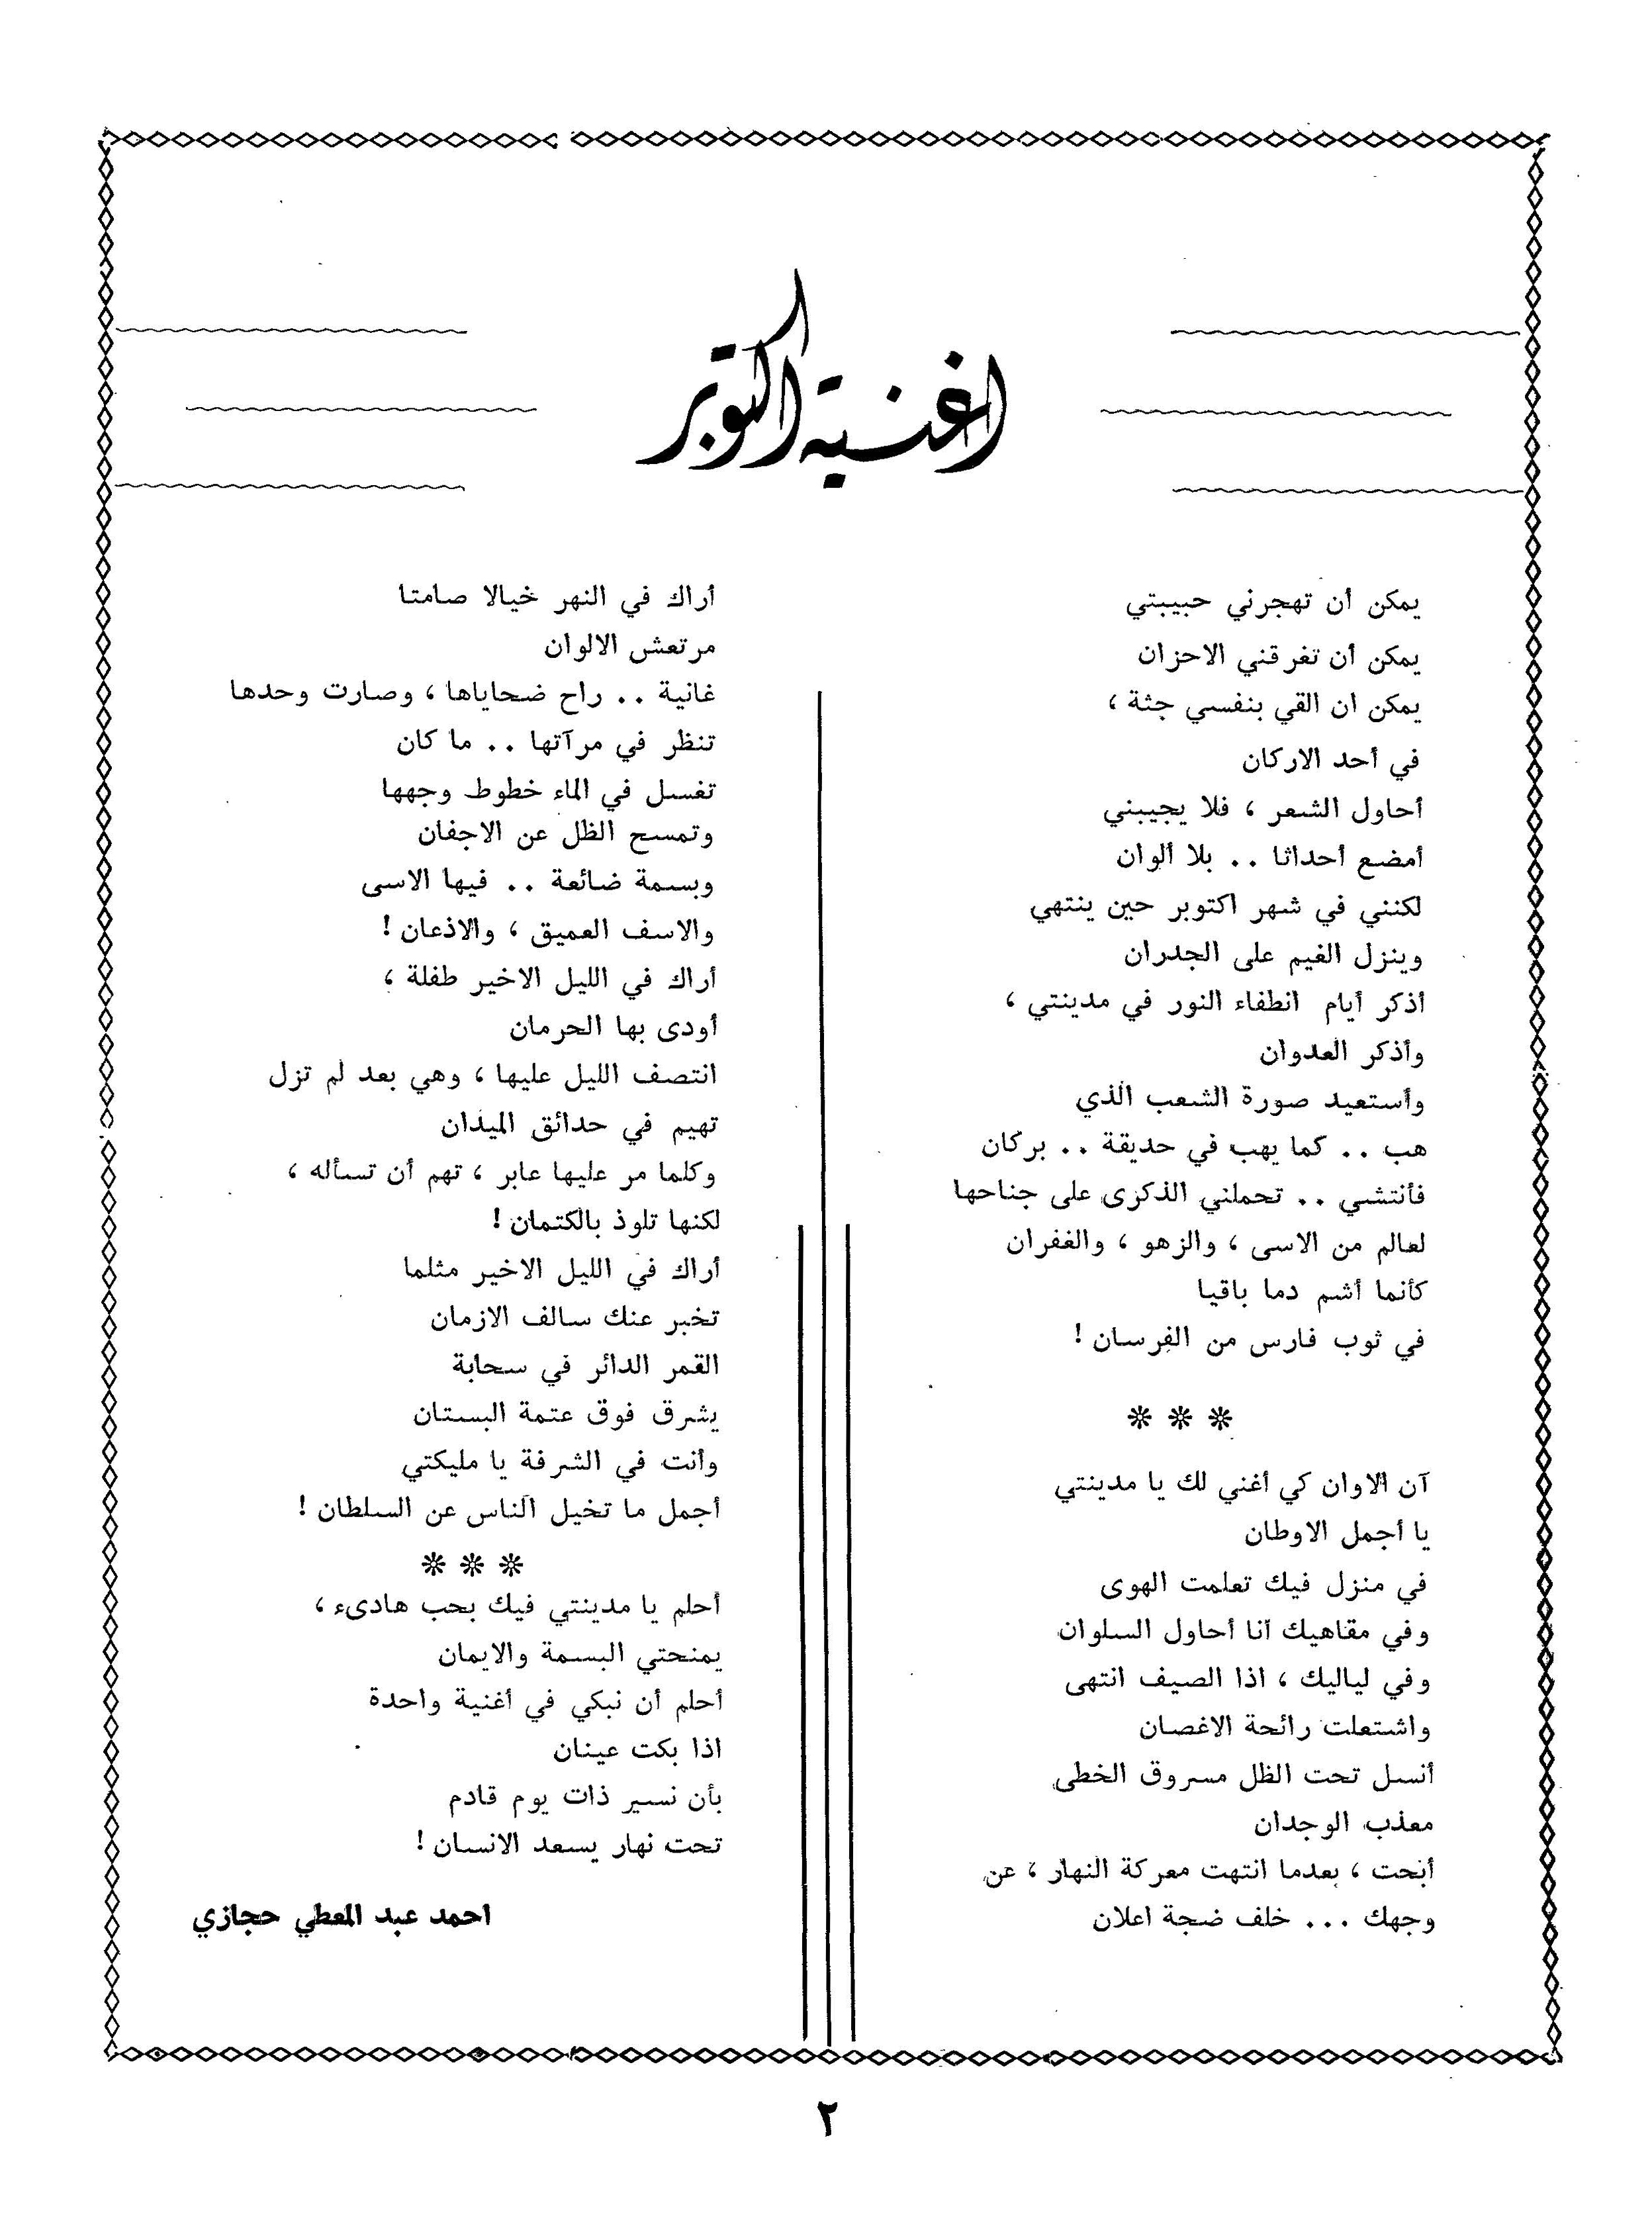 اغنية اكتوبر
يمكن أن تهجرني حبيبتي
يمكن أن تغرقني الاحزان
يمكن ان القي بنفسي جثة ،
في أحد الاركان
أحاول الشعر ، فلا يجيبني
أمضغ أحداثا .. بلا ألوان
لكنني في شهر اكتوبر حين ينتهي
وينزل الغيم على الجدران
أذكر أيام انطفاء النور في مدينتي ،
وأذكر العدوان
وأستعيد صورة الشعب الذي
هب .. كما يهب في حديقة .. بركان
فأنتشي .. تحملني الذكرى على جناحها
لعالم من الاسى ، والزهو ، والغفران
كأنما أشم دما باقيا
في ثوب فارس من الفرسان !
* * *
آن الاوان كي أغني لك يا مدينتي
يا أجمل الاوطان
في منزل فيك تعلمت الهوى
وفي مقاهيك أنا أحاول السلوان
وفي لياليك ، اذا الصيف انتهى
واشتعلت رائحة الاغصان
أنسل تحت الظل مسروق الخطى
معذب الوجدان
أبحث ، بعدما انتهت معركة النهار ، عن
وجهك ... خلف ضجة اعلان
أراك في النهر خيالا صامتا
مرتعش الالوان
غانية .. راح ضحاياها ، وصارت وحدها
تنظر في مرآتها .. ما كان
تغسل في الماء خطوط وجهها
وتمسح الظل عن الاجفان
وبسمة ضائعة .. فيها الاسى
والاسف العميق ، والاذعان !
أراك في الليل الاخير طفلة ،
أودى بها الحرمان
انتصف الليل عليها ، وهي بعد لم تزل
تهيم في حدائق الميدان
وكلما مر عليها عابر ، تهم أن تسأله ،
لكنها تلوذ بالكتمان !
أراك في الليل الاخير مثلما
تخبر عنك سالف الازمان
القمر الدائر في سحابة
يشرق فوق عتمة البستان
وأنت في الشرفة يا مليكتي
أجمل ما تخيل الناس عن السلطان !
* * *
أحلم يا مدينتي فيك بحب هادىء ،
يمنحتي البسمة والايمان
أحلم أن نبكي في أغنية واحدة
اذا بكت عينان
بأن نسير ذات يوم قادم
تحت نهار يسعد الانسان !
احمد عبد المعطي حجازي
٢